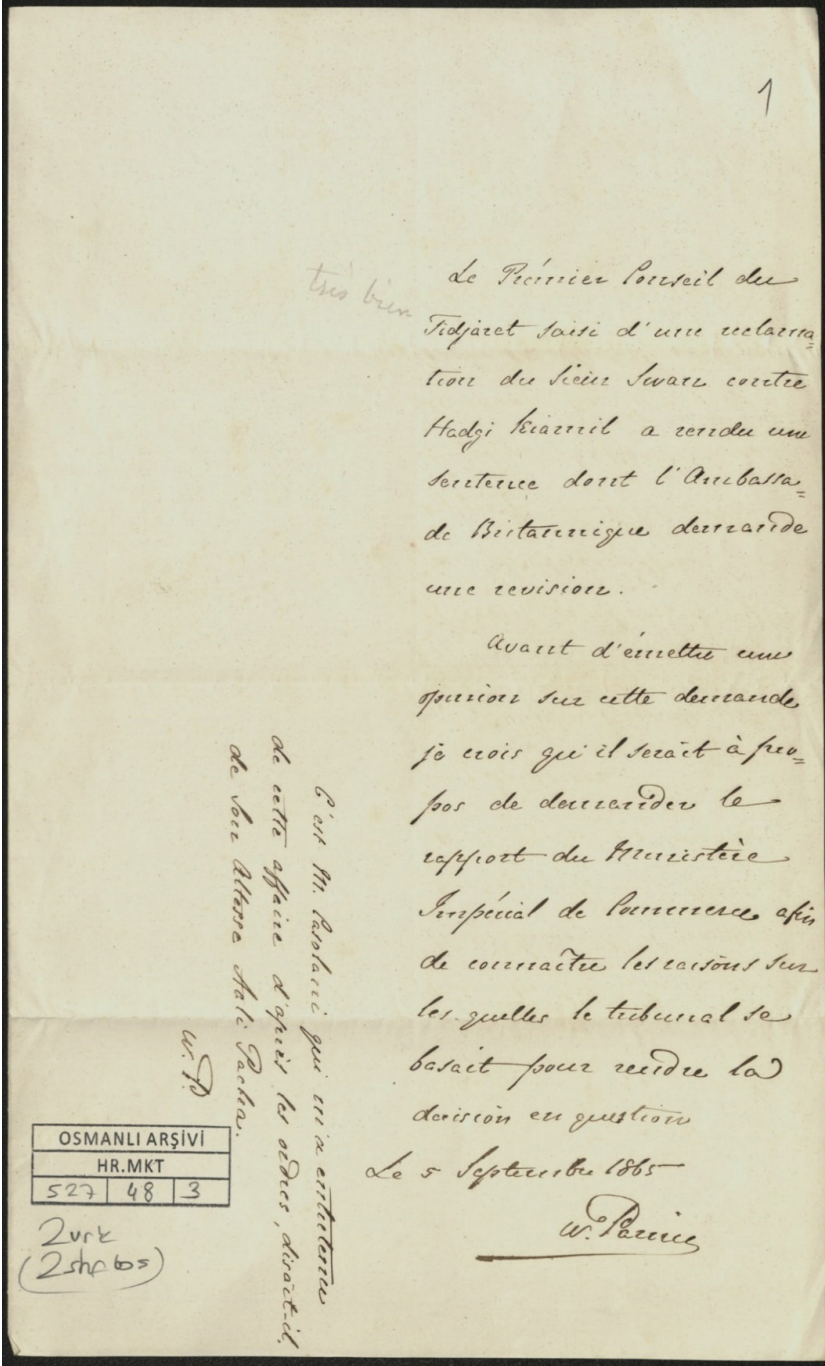 1
Le Prémier Conseil du
Tidjaret saisi d'une reclama=
tion du Sieur Swan contre
Hadgi Kiamil a rendu une
sentence dont l'Ambassa=
de Britannique demande
une revision.
très bien
Avant d'émettre une
opinion sur cette demande
je crois qu'il serait à pro=
pos de demander le
rapport du Ministère
Impérial de Commerce afin
de connaître les raisons sur
les quelles le tribunal se
basait pour rendre la
decision en question
Le 5 Septembre 1865
W.
C'est M. Casolani qui m'a entretenu
de cette affaire d'après les ordres, disait-il,
de Son Altesse Aali Pacha.
W. P.
OSMANLI ARŞİVİ
HR.MKT
527 48 3
2 vrk